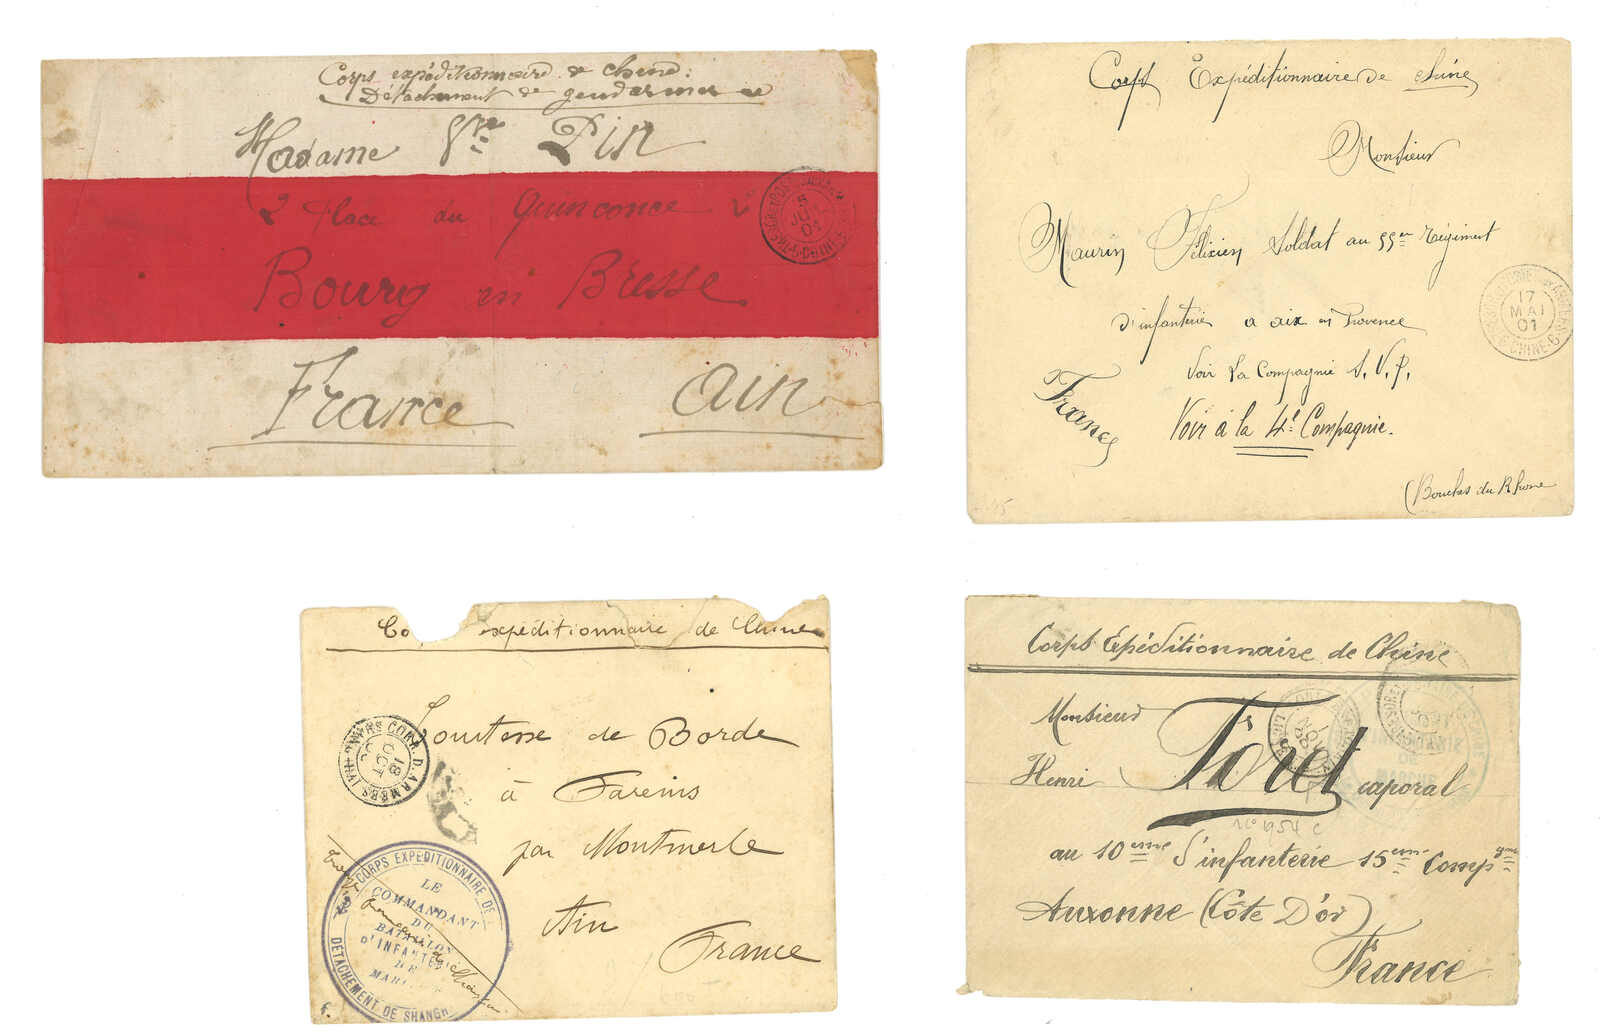 Corps expéditionnaire de chine:
Détachement de gendarmerie
Madame Vve Pin
2 Place du Quinconce 2
Bourg en Bresse
France Ain
5
JUIN
01
Corps Expéditionnaire de chine
Monsieur
Maurin Félixien Soldat au 55er Régiment
d'infanterie a aix en Provence
Voir la Compagnie S.V.P.
Voir à la 4e Compagnie.
France
(Bouches du Rhone
17
MAI
01
CHINE
Co expéditionnaire de Chine
Comtesse de Borde
à Fareins
par Montmerle
Ain
France
CORR. D. ARMEES
18
OCT
CORPS EXPEDITIONNAIRE DE
LE
COMMANDANT
DU
BATAILLON
D'INFANTERIE
DE
MARINE
DÉTACHEMENT DE SHANGH
Corps Expéditionnaire de Chine
Monsieur
Henri Foret caporal
au 10eme d'infanterie 15eme Compgnie
Auxonne (Côte D'or)
France
INFANTERIE
DE
MARCHE
No 1954 c